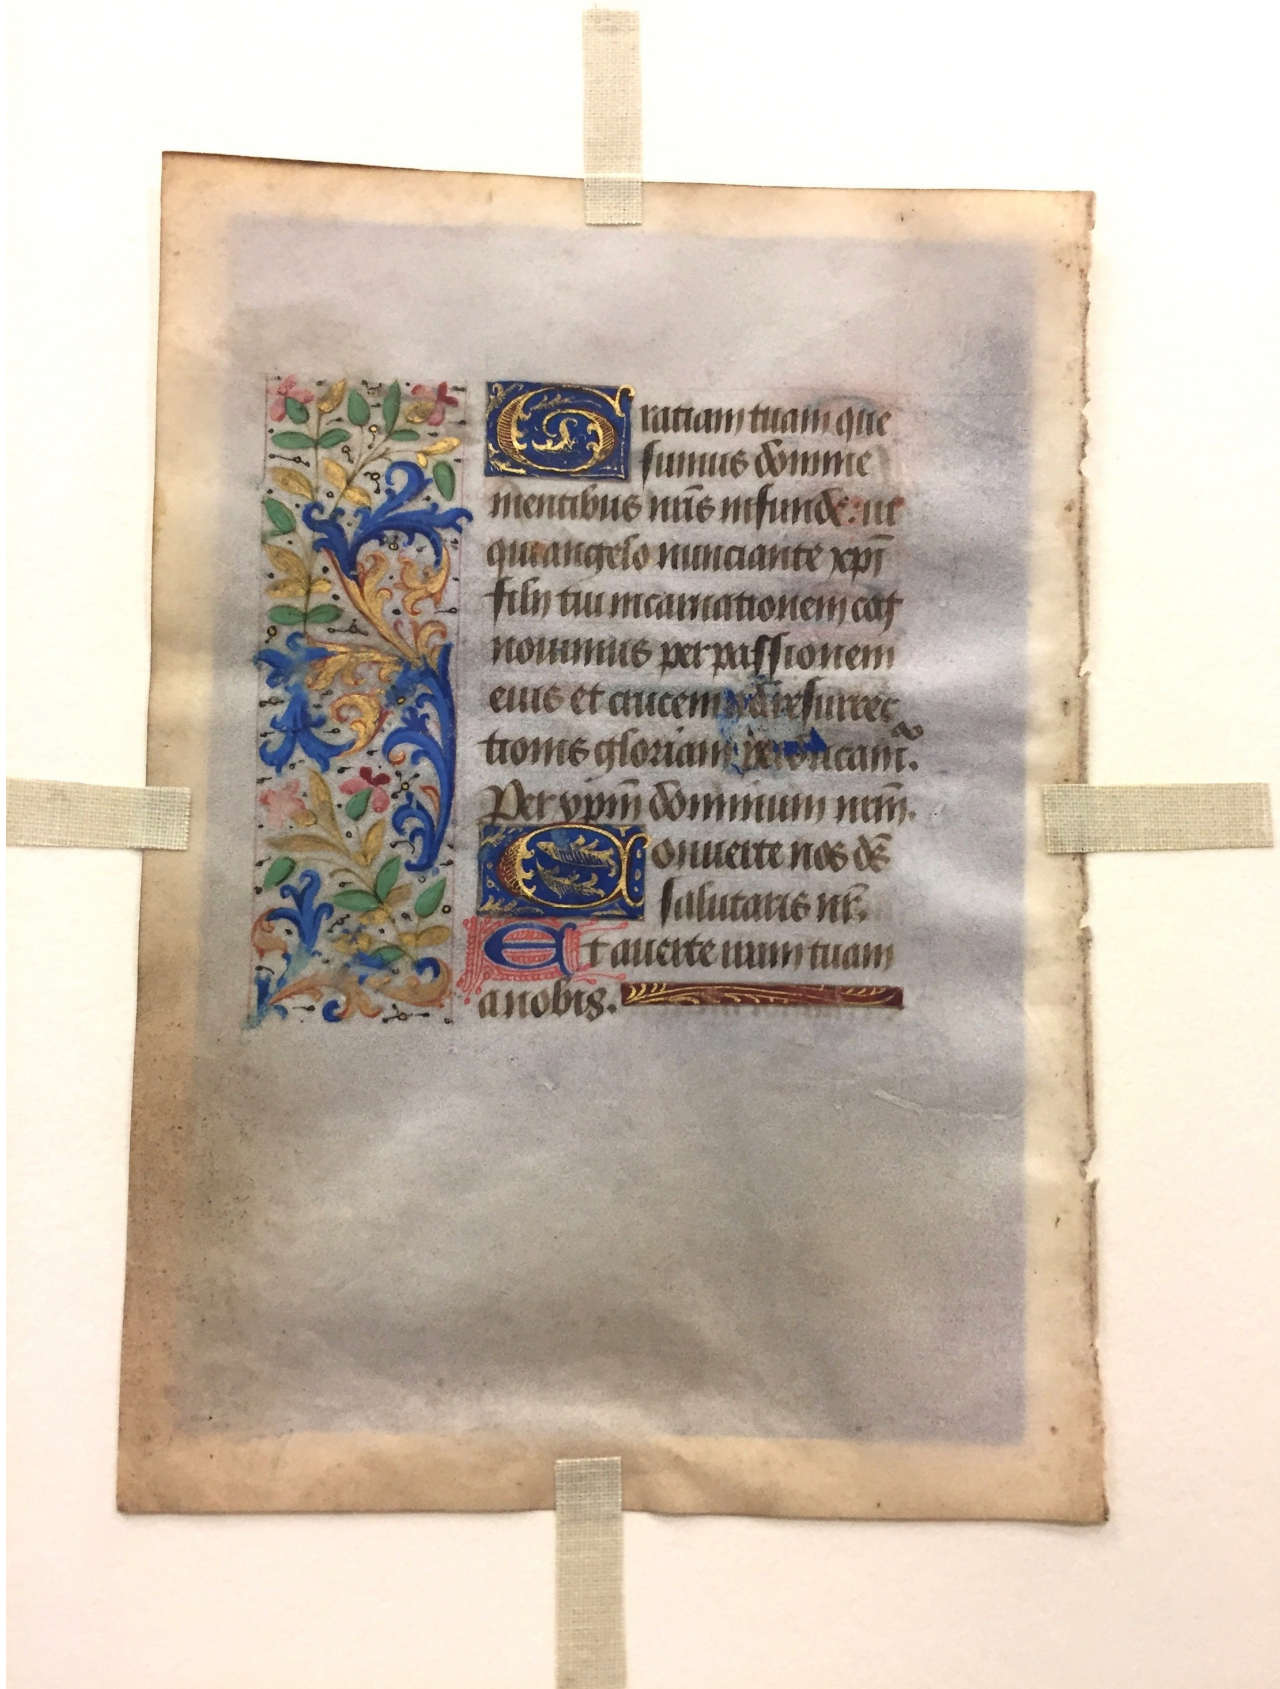 Gratiam tuam que
sumus domine
mentibus nr̄is infunde: ut
qui angelo nunciante xp̄i
filij tui incarnationem cog
nouimus per passionem
eius et crucem ad resurrec
tionis gloriam perducamr̄.
Per xp̄m dominum nrm̄.
Conuerte nos ds̄
salutaris nr̄.
Et auerte iram tuam
a nobis.